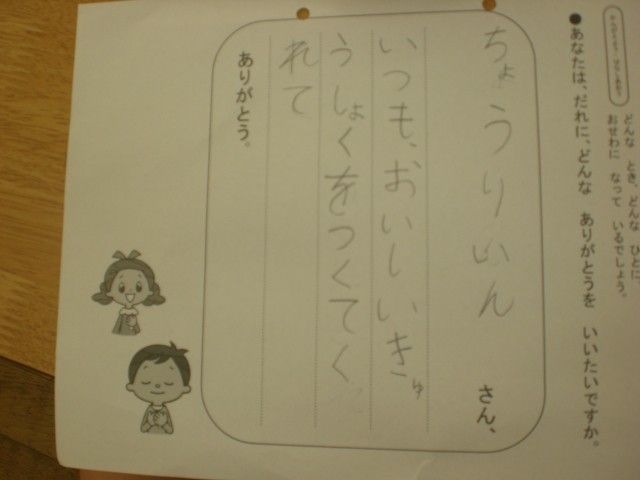 かんがえよう・はなしあおう
どんな とき、どんな ひとに、
おせわに なって いるでしょう。
●あなたは、だれに、どんな ありがとうを いいたいですか。
ちょうりいん さん、
いつも、おいしいきゅ
うしょくをつくてく
れて
ありがとう。